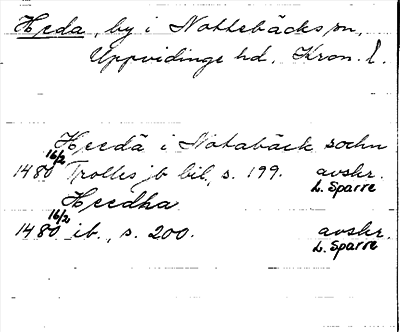 Heda, by i Nottebäcks sn,
Uppvidinge hd, Kron. l.
Heedä i Notabäck sochn
1480 16/2 Trolles jb bil., s. 199. avskr.
L. Sparre
Heedha
1480 16/2 ib., s. 200. avskr.
L. Sparre